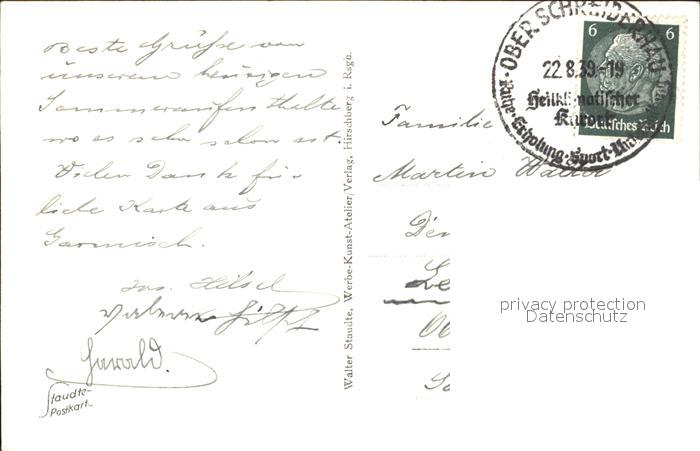 Beste Grüße von
unserem heurigen
Sommeraufenthalte
wo es sehr schön ist.
Vielen Dank für
liebe Karte aus
Garmisch.
Jos. Hilsch
Harald.
Staudte-
Postkart..
Walter Staudte, Werbe-Kunst-Atelier/Verlag, Hirschberg i. Rsgb.
OBER SCHREIBERHAU
22.8.39-19
Heilklimatischer
Kurort
Ruhe·Erholung·Sport·
6 6
Deutsches Reich
Familie
Martin Walter
privacy protection
Datenschutz